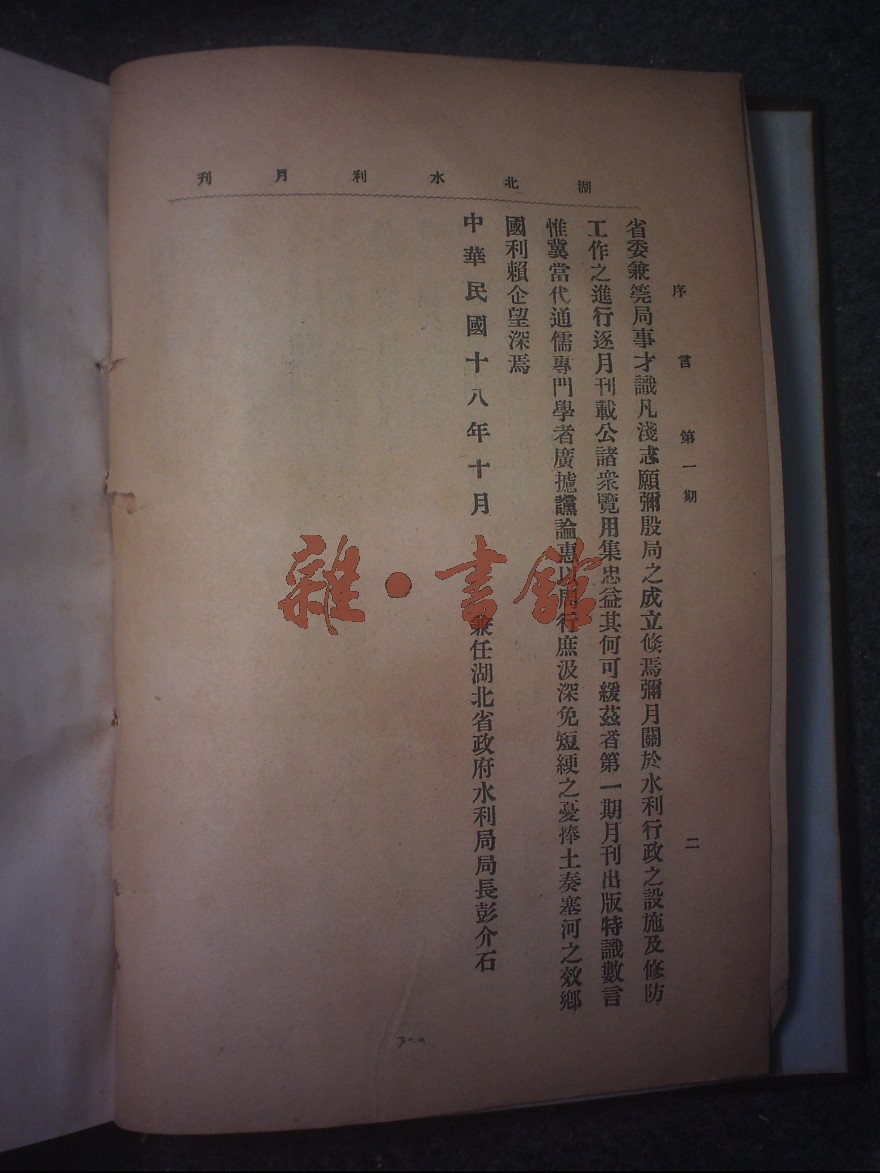 湖北水利月刊
序言 第一期 二
省委兼筦局事才識凡淺志願彌殷局之成立倐焉彌月關於水利行政之設施及修防
工作之進行逐月刊載公諸衆覽用集忠益其何可緩茲者第一期月刊出版特識數言
惟冀當代通儒專門學者廣攄讜論惠以周行庶汲深免短綆之憂捧土奏塞河之效鄉
國利賴企望深焉
中華民國十八年十月 兼任湖北省政府水利局局長彭介石
雜·書館